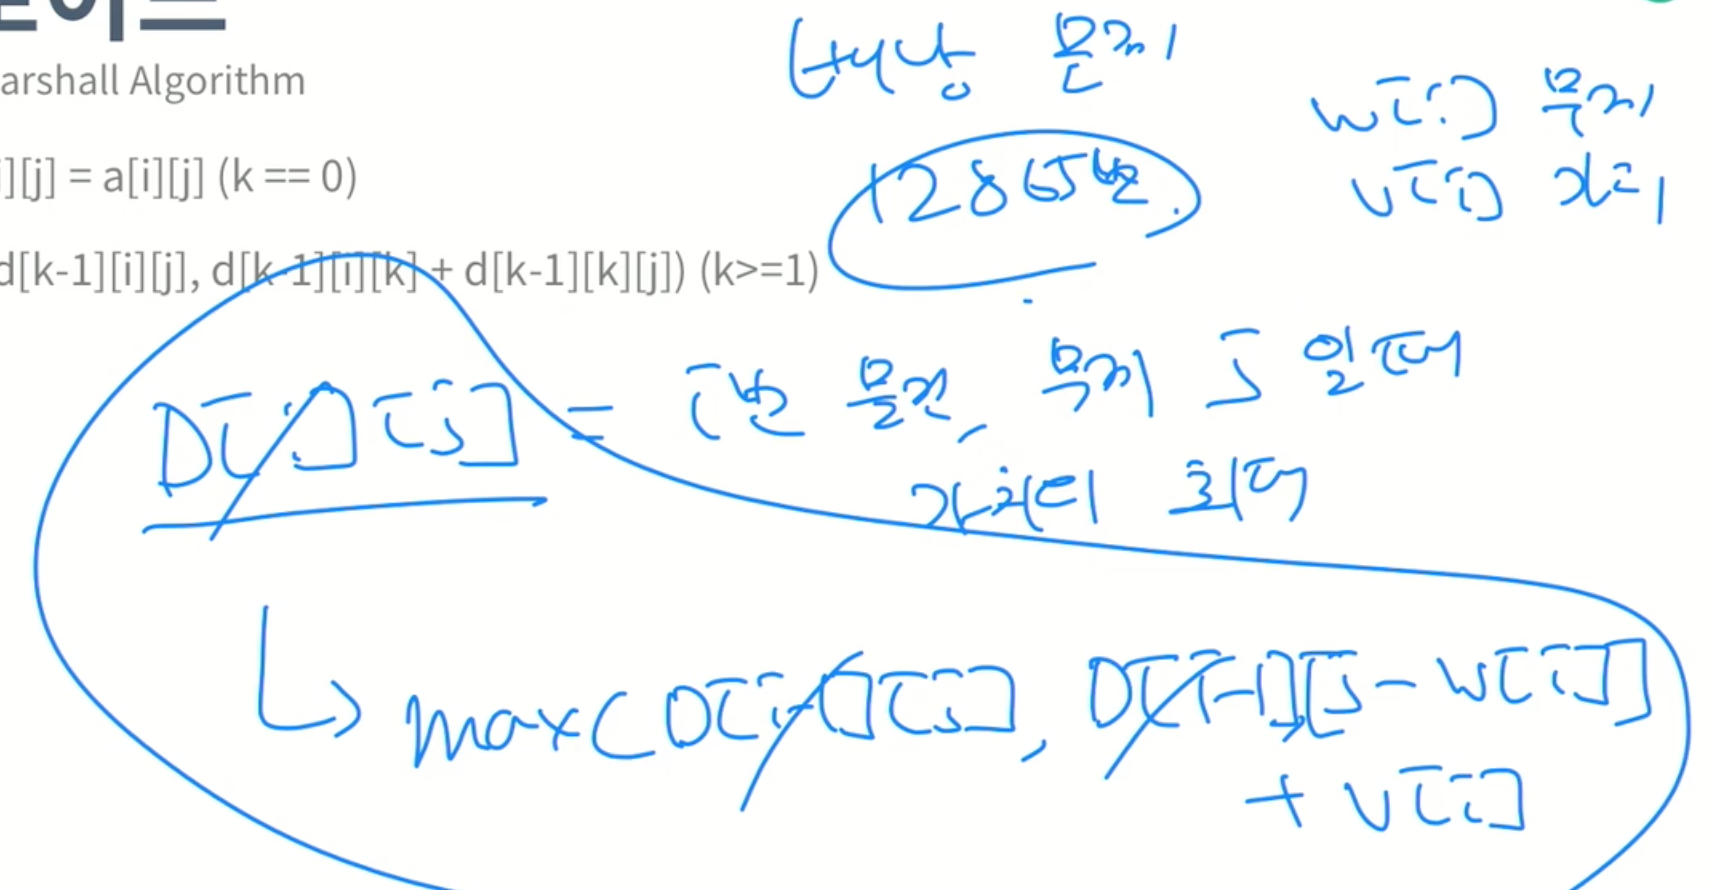 arshall Algorithm
][j] = a[i][j] (k == 0)
d[k-1][i][j], d[k-1][i][k] + d[k-1][k][j]) (k>=1)
배낭 문제
12865번.
w[i] 무게
v[i] 가치
D[i][j] = i번 물건, 무게 j 일때
가치의 최대
max(D[i-1][j], D[i-1][j-w[i]]
+ v[i]